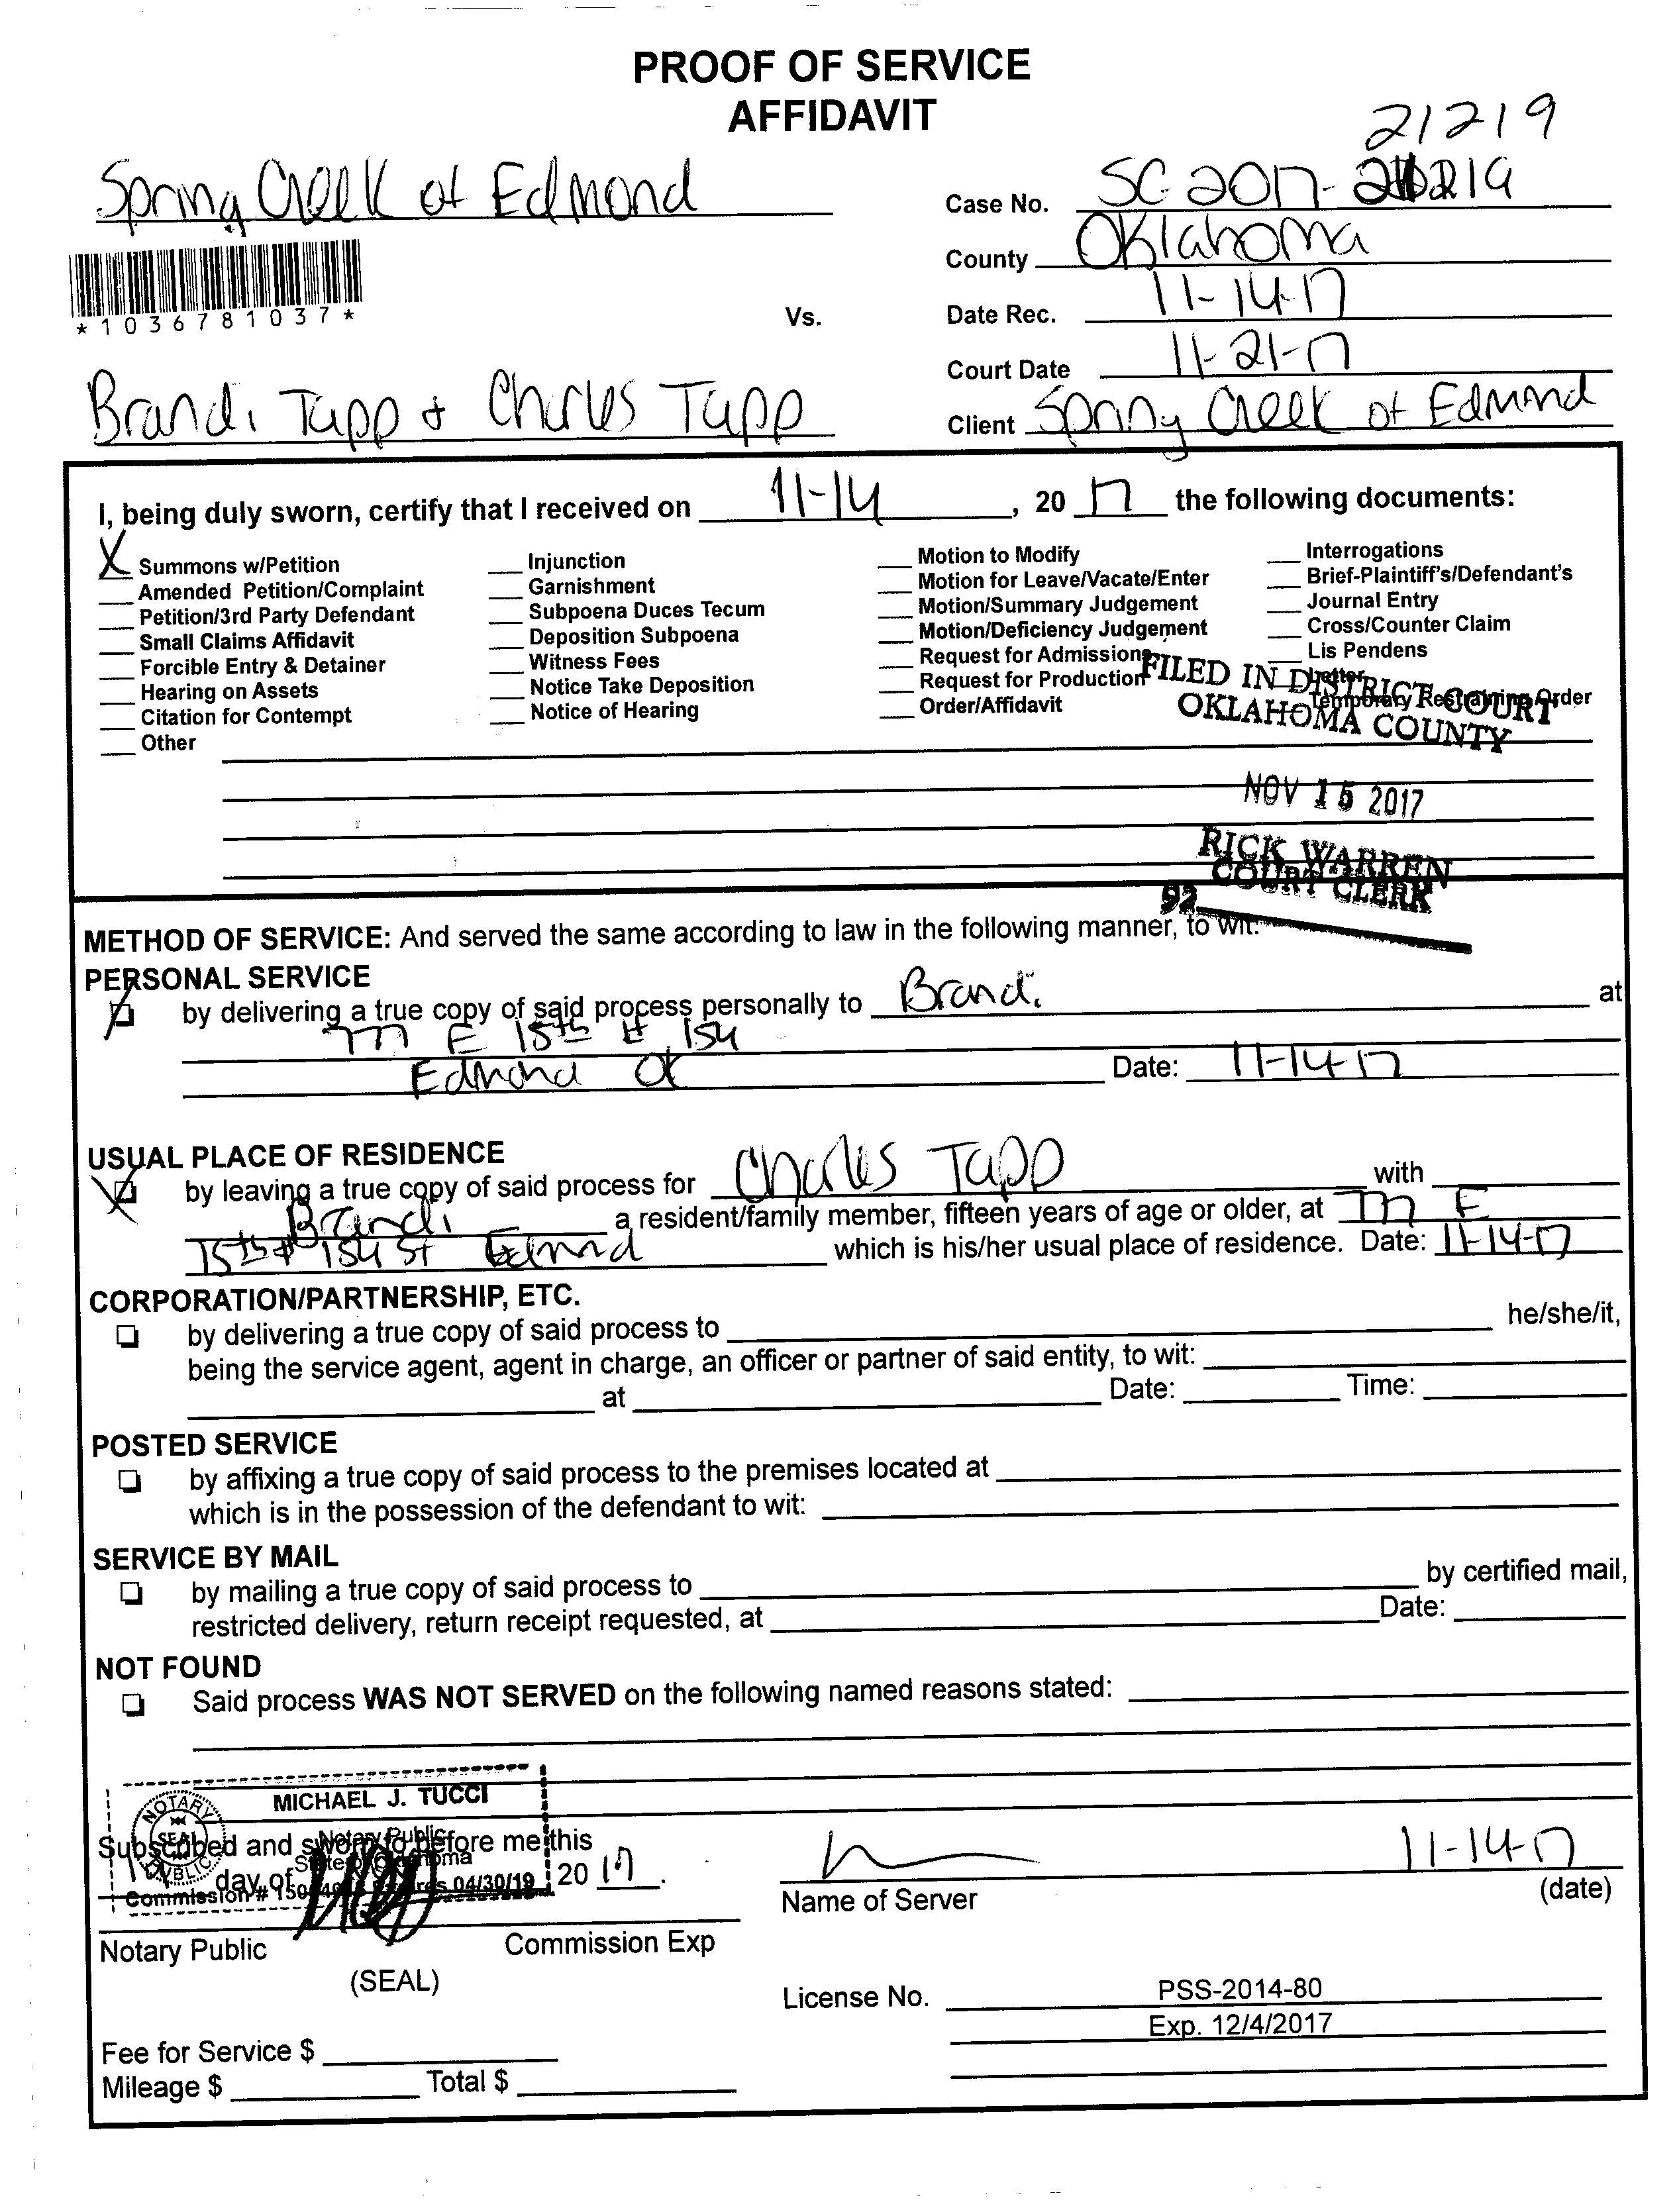 PROOF OF SERVICE
AFFIDAVIT
21219
Spring Creek of Edmond
Case No. SC 2017-21219
County Oklahoma
*1036781037*
Vs.
Date Rec. 11-14-17
Court Date 11-21-17
Brandi Tapp & Charles Tapp
Client Spring Creek of Edmond
I, being duly sworn, certify that I received on 11-14, 20 17 the following documents:
X Summons w/Petition
Amended Petition/Complaint
Petition/3rd Party Defendant
Small Claims Affidavit
Forcible Entry & Detainer
Hearing on Assets
Citation for Contempt
Other
Injunction
Garnishment
Subpoena Duces Tecum
Deposition Subpoena
Witness Fees
Notice Take Deposition
Notice of Hearing
Motion to Modify
Motion for Leave/Vacate/Enter
Motion/Summary Judgement
Motion/Deficiency Judgement
Request for Admissions
Request for Production
Order/Affidavit
Interrogations
Brief-Plaintiff's/Defendant's
Journal Entry
Cross/Counter Claim
Lis Pendens
Letter
Temporary Restraining Order
FILED IN DISTRICT COURT
OKLAHOMA COUNTY
NOV 15 2017
RICK WARREN
COURT CLERK
92
METHOD OF SERVICE: And served the same according to law in the following manner, to wit:
PERSONAL SERVICE
by delivering a true copy of said process personally to Brandi at
777 E 15th # 154
Edmond OK Date: 11-14-17
USUAL PLACE OF RESIDENCE
by leaving a true copy of said process for Charles Tapp with
Brandi a resident/family member, fifteen years of age or older, at 777 E
15th # 154 St Edmond which is his/her usual place of residence. Date: 11-14-17
CORPORATION/PARTNERSHIP, ETC.
by delivering a true copy of said process to he/she/it,
being the service agent, agent in charge, an officer or partner of said entity, to wit:
at Date: Time:
POSTED SERVICE
by affixing a true copy of said process to the premises located at
which is in the possession of the defendant to wit:
SERVICE BY MAIL
by mailing a true copy of said process to by certified mail,
restricted delivery, return receipt requested, at Date:
NOT FOUND
Said process WAS NOT SERVED on the following named reasons stated:
MICHAEL J. TUCCI
NOTARY SEAL PUBLIC
Notary Public
State of Oklahoma
Commission # Expires 04/30/19
Subscribed and sworn to before me this
day of 20 17.
11-14-17
Name of Server (date)
Notary Public Commission Exp
(SEAL)
License No. PSS-2014-80
Exp. 12/4/2017
Fee for Service $
Mileage $ Total $